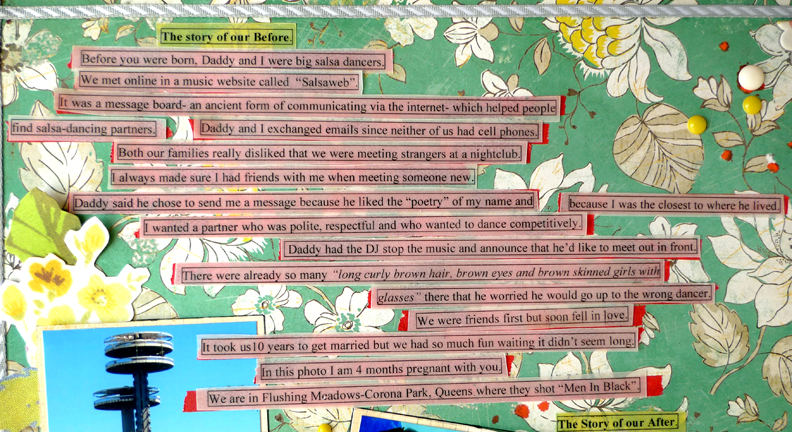 The story of our Before.
Before you were born, Daddy and I were big salsa dancers.
We met online in a music website called “Salsaweb”
It was a message board- an ancient form of communicating via the internet- which helped people
find salsa-dancing partners. Daddy and I exchanged emails since neither of us had cell phones.
Both our families really disliked that we were meeting strangers at a nightclub.
I always made sure I had friends with me when meeting someone new.
Daddy said he chose to send me a message because he liked the “poetry” of my name and because I was the closest to where he lived.
I wanted a partner who was polite, respectful and who wanted to dance competitively.
Daddy had the DJ stop the music and announce that he’d like to meet out in front.
There were already so many “long curly brown hair, brown eyes and brown skinned girls with
glasses” there that he worried he would go up to the wrong dancer.
We were friends first but soon fell in love.
It took us10 years to get married but we had so much fun waiting it didn’t seem long.
In this photo I am 4 months pregnant with you.
We are in Flushing Meadows-Corona Park, Queens where they shot “Men In Black”
The Story of our After.